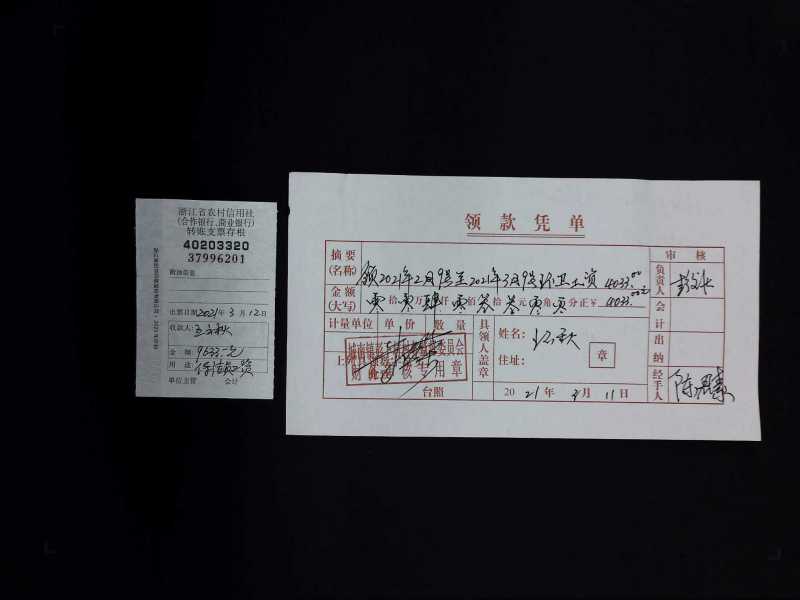 浙江省农村信用社
(合作银行、商业银行)
转账支票存根
40203320
37996201
附加信息
出票日期2021年3月12日
收款人:王方秋
金 额:9633.元
用 途:保洁员工资
单位主管 会计
领款凭单
摘要(名称) 领2021年2月9号至2021年3月9号环卫工资4033.00
金额(大写) 零拾零万肆仟零佰叁拾叁元零角零分正¥4033.00元
计量单位 单价 数量
财 专用章
台照
具领人盖章
姓名:
住址:
章
2021年3月11日
审 核
负责人
会计
出纳
经手人 陈